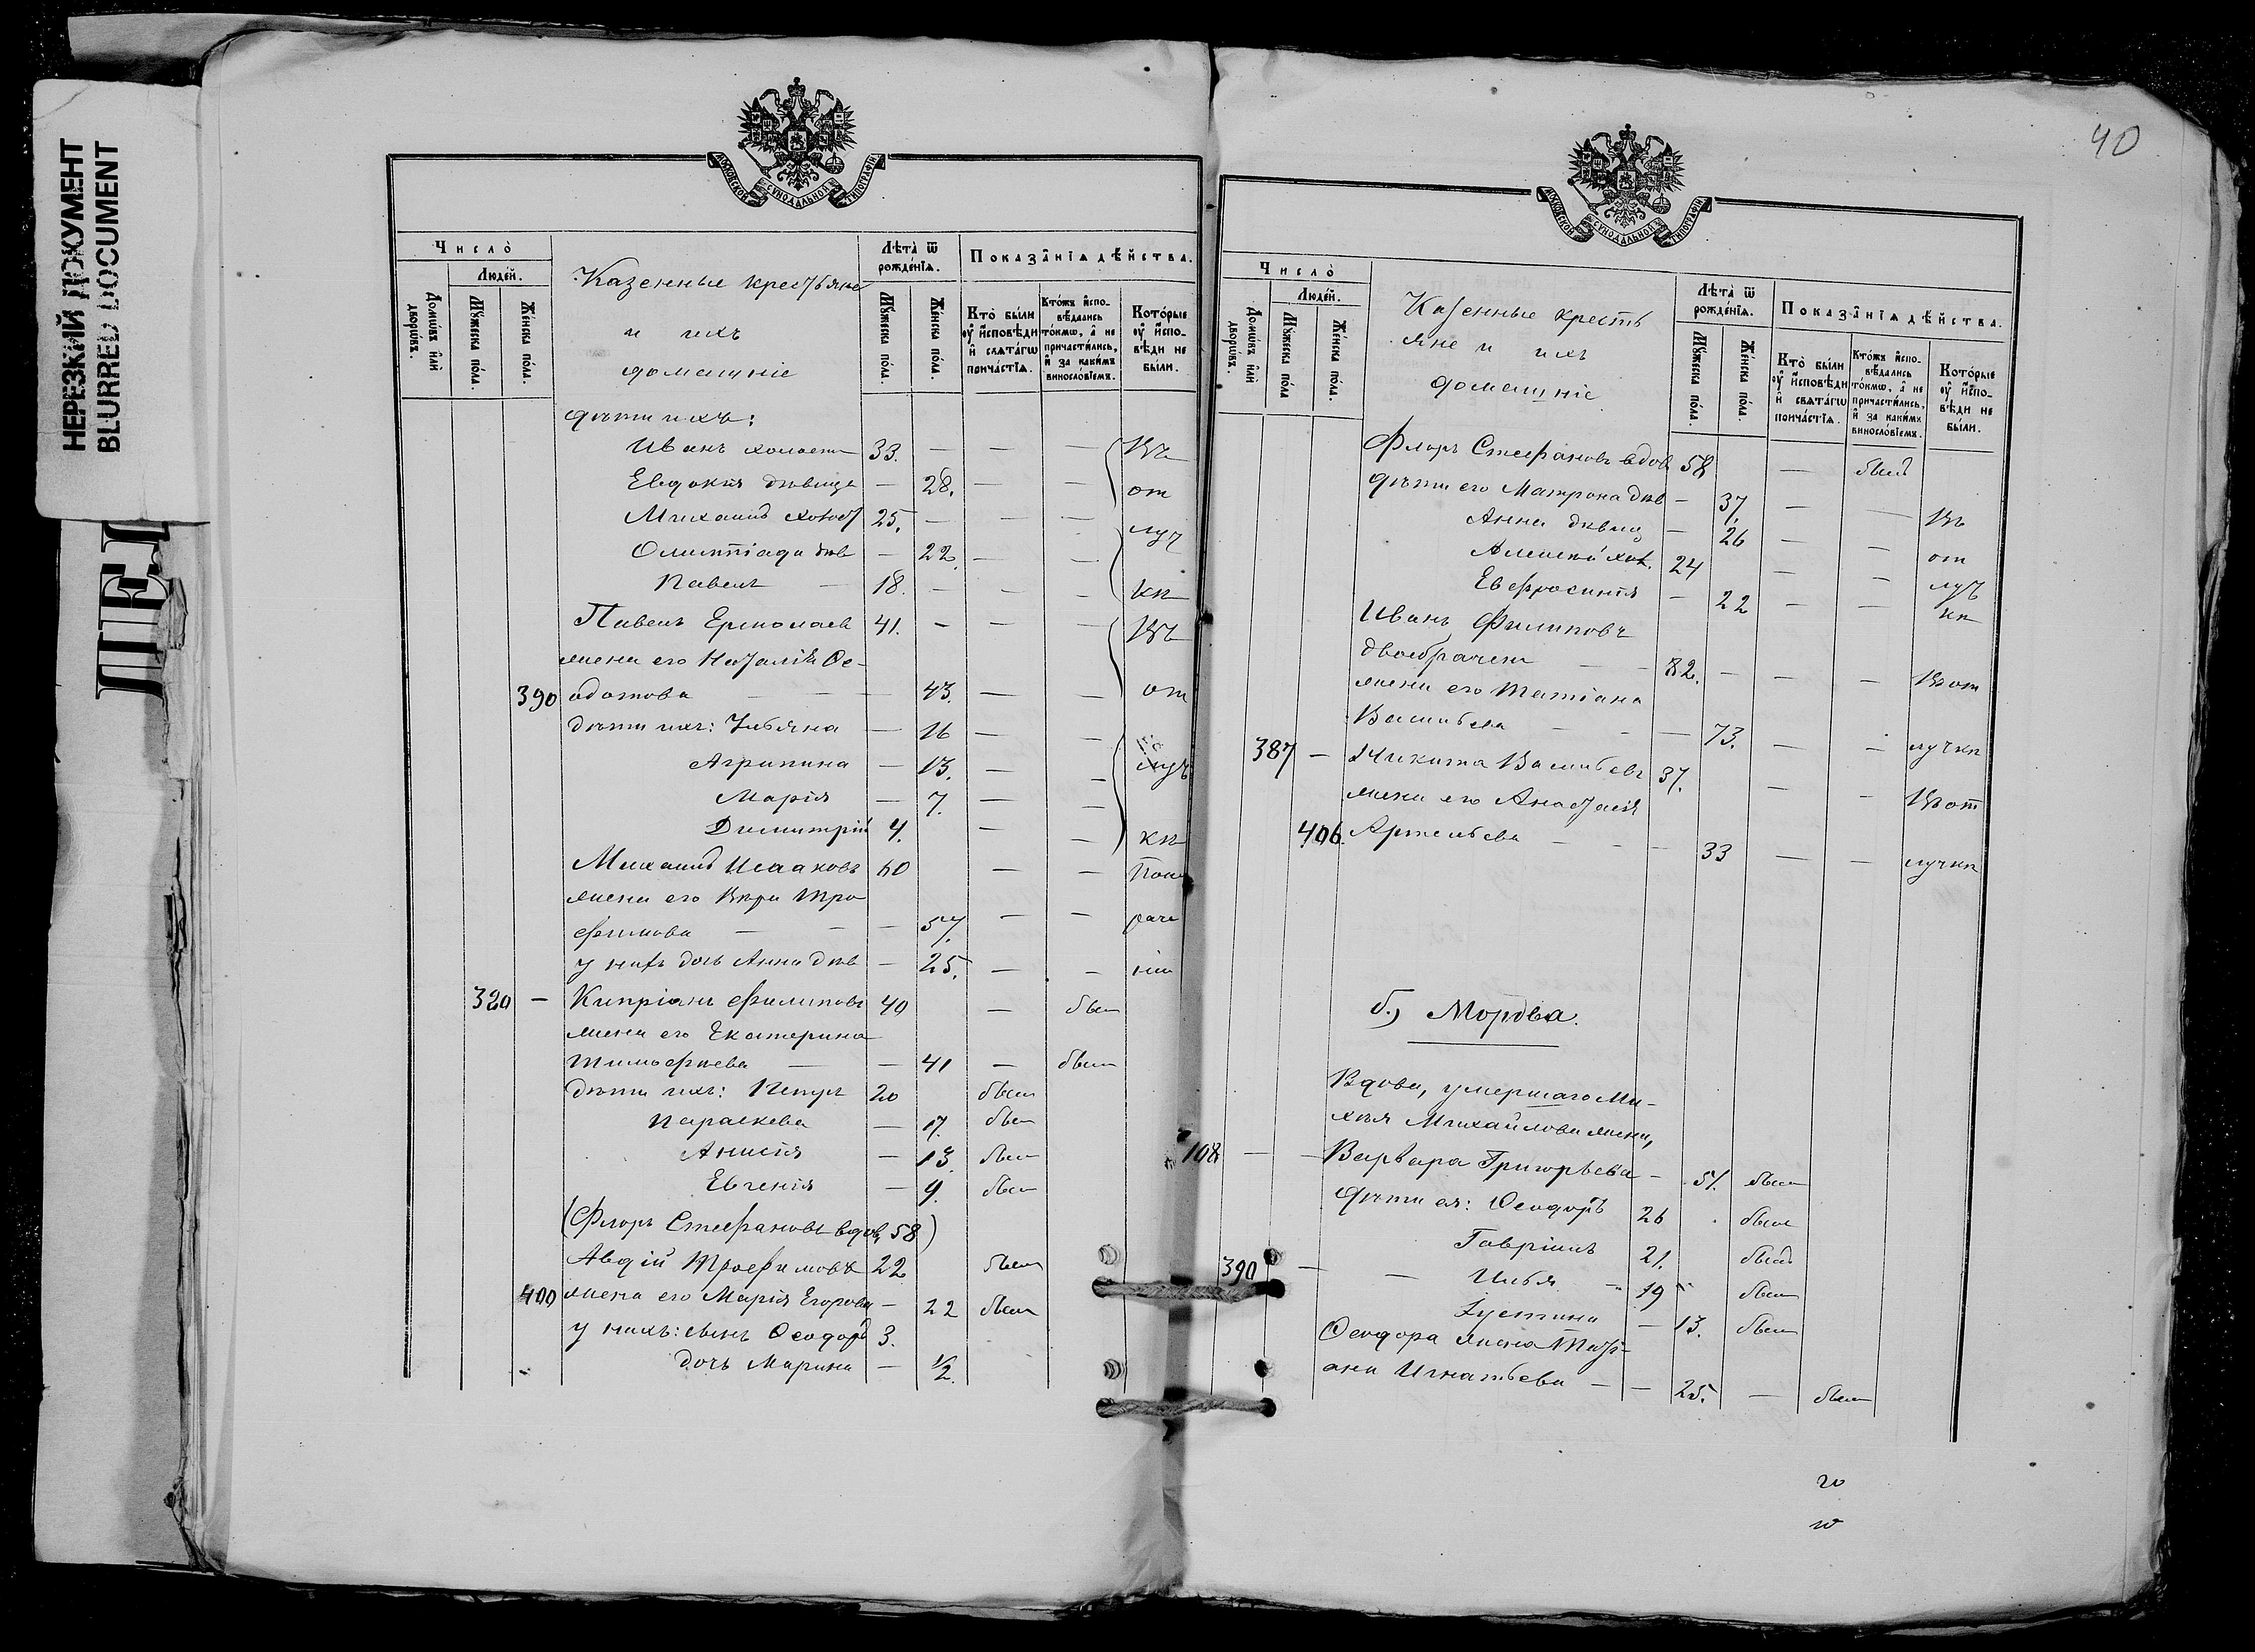 НЕРЕЗКИЙ ДОКУМЕНТ
BLURRED DOCUMENT
МОСКОВСКОЙ СУНОДАЛЬНОЙ ТИПОГРАФІИ
Число
Людей.
Домѡвъ или дворѡвъ.
Мꙋжеска пола.
Женска пола.
Казенные крестьяне
и ихъ
домашніе
Лѣта ѿ рожденїѧ.
Мꙋжеска пола.
Женска пола.
Показанїѧ дѣйства.
Кто были
оу исповѣди
и свѧтагѡ
причастїѧ.
Ктожъ испо-
вѣдались
токмѡ, а не
причастились,
и за какимъ
винословїемъ.
Которые
оу испо-
вѣди не
были.
дѣти ихъ:
Иванъ холост 33. — — — Въ
Евдокія дѣвица — 28. — — от
Михаилъ холост 25. — — —
Олимпіада дѣв — 22. — — луч
Павелъ — 18. — — — кѣ
Павелъ Ермолаев 41. — — — Въ
жена его Наталія Ѳе-
390 одотова — — — 43. — — от
дѣти ихъ: Ульяна — 16 — —
Агрипина — 13. — — луч
Марія — 7. — —
Димитрій 4. — — кѣ
Михаилъ Исааковъ 60 — —
жена его Вѣра Тро
фимова — — — 57. — —
у нихъ дочь Анна дѣв — 25. — —
320 — Кипріанъ Филиповъ 40 — был
жена его Екатерина
Тимофѣева — — 41 — был
дѣти ихъ: Петръ 20 был
Параскева — 17. был
Анисія — 13. был
Евгенія — 9. был
(Флоръ Стефановъ вдов, 58)
Авдій Трофимовъ 22 был
400 жена его Марія Егорова — 22 был
у нихъ: сынъ Ѳеодоръ 3.
дочь Марина — 1/2.
40
МОСКОВСКОЙ СУНОДАЛЬНОЙ ТИПОГРАФІИ
Число
Людей.
Домѡвъ или дворѡвъ.
Мꙋжеска пола
Женска пола.
Казенные кресть
яне и ихъ
домашніе
Лѣта ѿ рожденїѧ.
Мꙋжеска пола.
Женска пола.
Показанїѧ дѣйства.
Кто были
оу исповѣди
и свѧтагѡ
причастїѧ.
Ктожъ испо-
вѣдались
токмѡ, а не
причастились,
и за какимъ
винословїемъ.
Которые
оу испо-
вѣди не
были.
Флоръ Стефановъ вдов 58 — был
дѣти его Матрона дѣв — 37. — — Въ
Анна дѣвиц — 26 — — от
Алексѣй хол. 24 — — луч
Евфросинія — 22 — — кѣ
Иванъ Филиповъ
двоебрачен — — 82. — — — Въ от
жена его Татіана
Васильева — — — 73. — — луч кѣ
387 — Никита Васильевъ 37. — — Въ от
жена его Анастасія
406. Артемьева — — — 33 — — луч кѣ
б.) Мордва.
Вдова, умершаго Ми-
хѣя Михайлова жена,
108 — — Варвара Григорьева — 51. был
дѣти ея: Ѳеодоръ 26 был
Гавріилъ 21. был
390 — — Илья 19 был
Іустина — 13. был
Ѳеодора жена Тати-
ана Игнатьева — — 25. — был